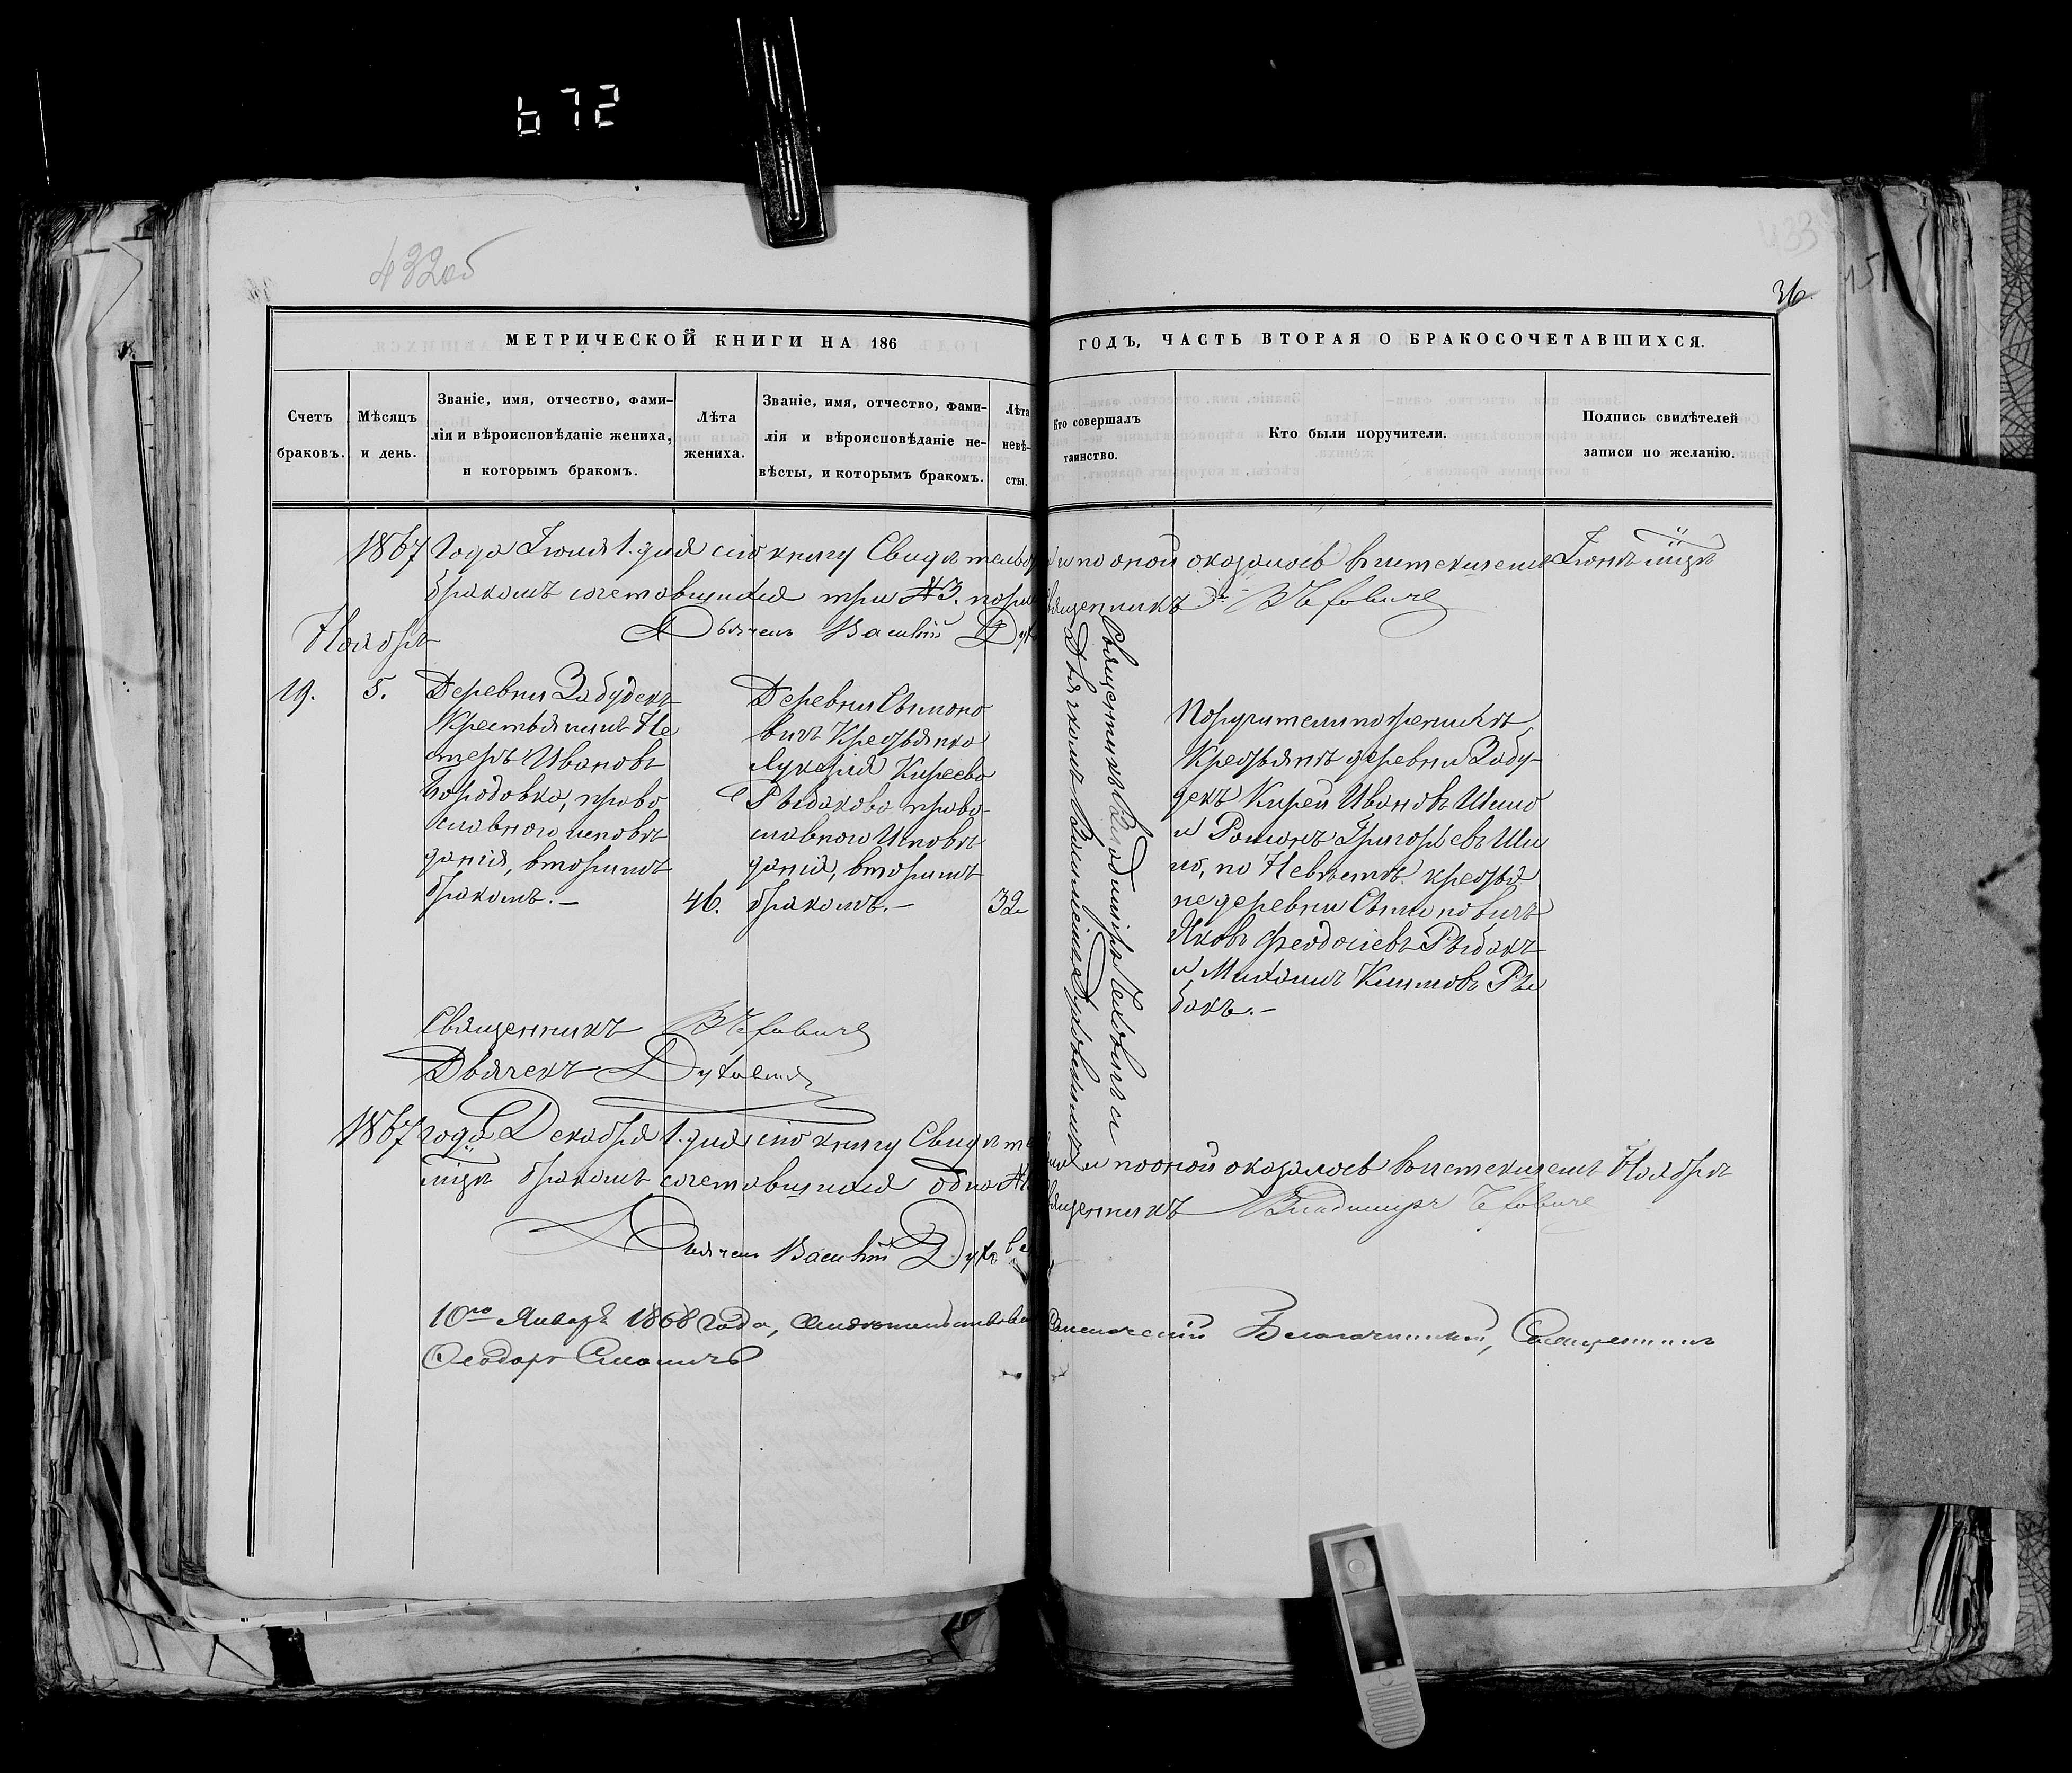 672
432об
433
151
36.
МЕТРИЧЕСКОЙ КНИГИ НА 186
ГОДЪ, ЧАСТЬ ВТОРАЯ О БРАКОСОЧЕТАВШИХСЯ.
Счетъ браковъ.
Мѣсяцъ и день.
Званіе, имя, отчество, фами-
лія и вѣроисповѣданіе жениха,
и которымъ бракомъ.
Лѣта жениха.
Званіе, имя, отчество, фами-
лія и вѣроисповѣданіе не-
вѣсты, и которымъ бракомъ.
Лѣта невѣ-
сты.
Кто совершалъ таинство.
Кто были поручители.
Подпись свидѣтелей
записи по желанію.
1867 года Іюля 1. дня сію книгу Свидѣтельво и по оной оказалось въ истекшемъ Іюнѣ мцѣ
бракомъ сочетавшихся три №3. Священникъ
Дьячекъ Василій
Ноябрь
19.
5.
Деревни Забудекъ
Крестьянинъ Не
стеръ Ивановъ
Бородовка, право
славного исповѣ
данія, вторымъ
бракомъ.–
46.
Деревни Симоно
вичъ Крестьянка
Лукерія Киреева
Рыбакова право-
славного Исповѣ
данія, вторымъ
бракомъ.–
32
Священникъ Владиміръ
Дьячкомъ Василіемъ Духовскимъ
Поручители по женихѣ
Крестьянѣ деревни Забу-
декъ Кирей Ивановъ Шило
и Романъ Григорьевъ Ши
ло, по Невѣстѣ крестья
не деревни Симоновичъ
Яковъ Феодосіевъ Рыбакъ
и Михаилъ Климовъ Ры
бакъ.–
Священникъ
Дьячекъ Духовскій
1867 года Декабря 1. дня сію книгу Свидѣте и по оной оказалось въ истекшемъ Ноябрѣ
мцѣ бракомъ сочетавшихся одна Священникъ Владиміръ
Дьячекъ Василій Духовс
10го Января 1868 года, Свидѣтельствовалъ Благочинный, Священникъ
Феодоръ